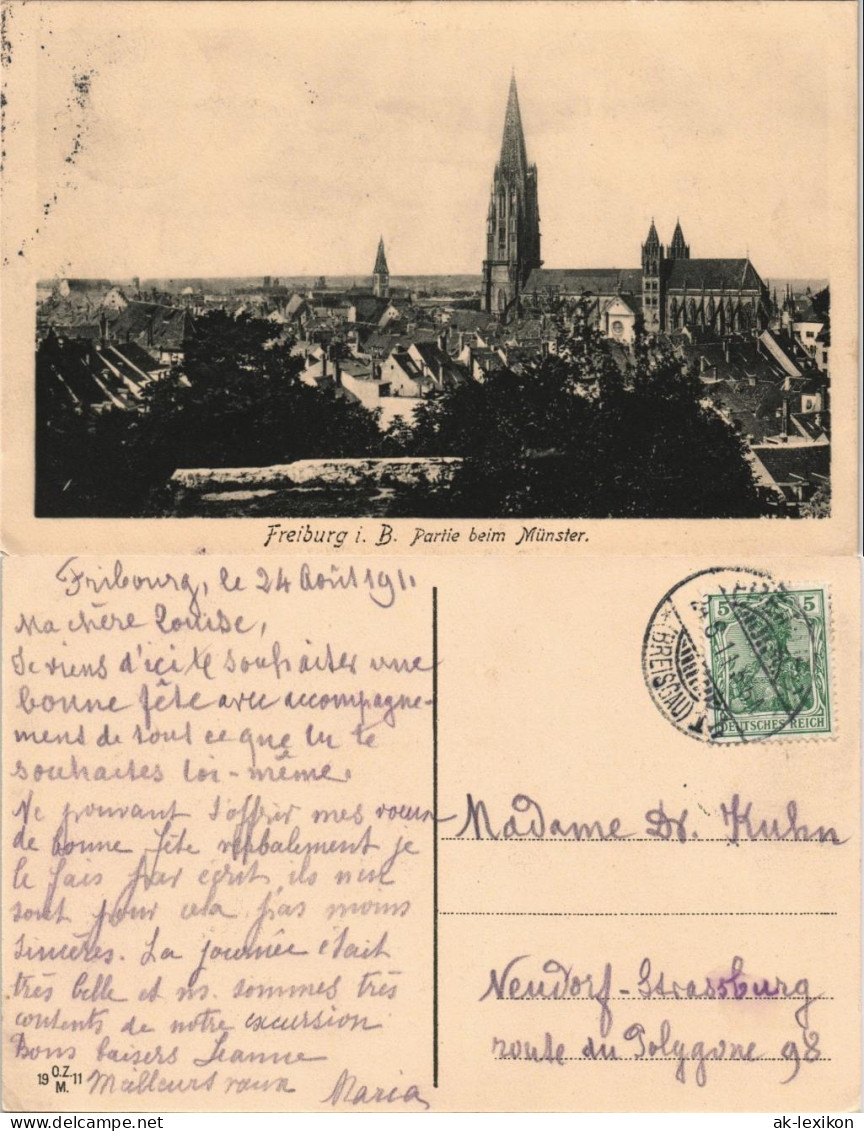 Freiburg i. B. Partie beim Münster.
Fribourg, le 24 Août 1911
Ma chère Louise,
Je viens d'ici te souhaiter une
bonne fête avec accompagne-
ment de tout ce que tu te
souhaites toi-même.
Ne pouvant t'offrir mes vœux
de bonne fête verbalement je
le fais par écrit, ils n'en
sont pour cela pas moins
sincères. La journée était
très belle et ns. sommes très
contents de notre excursion
Bons baisers Jeanne
Meilleurs vœux Maria
19 O.Z.M. 11
(BREISGAU)
5 5
DEUTSCHES REICH
Madame Dr. Kuhn
Neudorf-Strassburg
route du Polygone 98
ak-lexikon